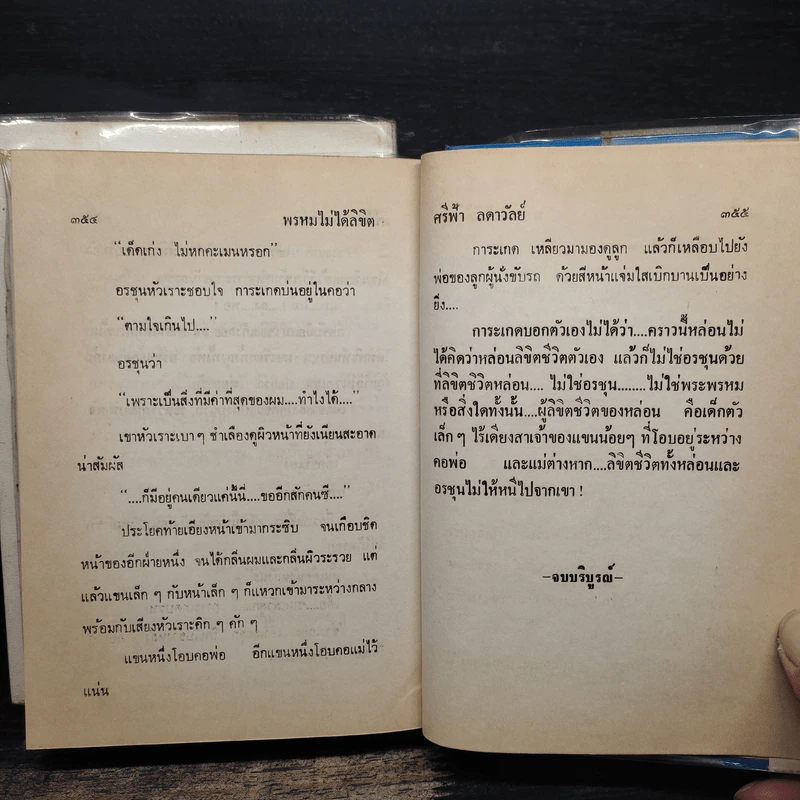 ๓๕๔ พรหมไม่ได้ลิขิต
“เด็คเก่ง ไม่หกคะเมนหรอก”
อรชุนหัวเราะชอบใจ การะเกตบ่นอยู่ในคอว่า
“ตามใจเกินไป....”
อรชุนว่า
“เพราะเป็นสิ่งที่มีค่าที่สุดของผม....ทำไงได้....”
เขาหัวเราะเบา ๆ ชำเลืองดูผิวหน้าที่ยังเนียนสะอาด
น่าสัมผัส
“....ก็มีอยู่คนเดียวแค่นี้นี่....ขออีกสักคนซี....”
ประโยคท้ายเอียงหน้าเข้ามากระซิบ จนเกือบชิด
หน้าของอีกฝ่ายหนึ่ง จนได้กลิ่นผมและกลิ่นผิวระรวย แต่
แล้วแขนเล็ก ๆ กับหน้าเล็ก ๆ ก็แหวกเข้ามาระหว่างกลาง
พร้อมกับเสียงหัวเราะคิก ๆ คัก ๆ
แขนหนึ่งโอบคอพ่อ อีกแขนหนึ่งโอบคอแม่ไว้
แน่น
ศรีฟ้า ลดาวัลย์ ๓๕๕
การะเกด เหลียวมามองดูลูก แล้วก็เหลือบไปยัง
พ่อของลูกผู้นั่งขับรถ ด้วยสีหน้าแจ่มใสเบิกบานเป็นอย่าง
ยิ่ง....
การะเกดบอกตัวเองไม่ได้ว่า....คราวนี้หล่อนไม่
ได้คิดว่าหล่อนลิขิตชีวิตตัวเอง แล้วก็ไม่ใช่อรชุนด้วย
ที่ลิขิตชีวิตหล่อน.... ไม่ใช่อรชุน........ไม่ใช่พระพรหม
หรือสิ่งใดทั้งนั้น....ผู้ลิขิตชีวิตของหล่อน คือเด็กตัว
เล็ก ๆ ไร้เดียงสาเจ้าของแขนน้อยๆ ที่โอบอยู่ระหว่าง
คอพ่อ และแม่ต่างหาก....ลิขิตชีวิตทั้งหล่อนและ
อรชุนไม่ให้หนีไปจากเขา !
–จบบริบูรณ์–